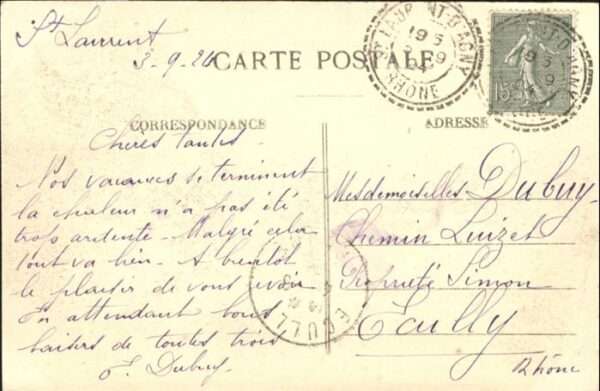 St Laurent
3-9-24
CARTE POSTALE
ST LAURENT-D'AGNY
RHÔNE
15
CORRESPONDANCE
ADRESSE
Chères tantes
Nos vacances se terminent
la chaleur n'a pas été
trop ardente. Malgré cela
tout va bien. A bientôt
le plaisir de vous revoir
En attendant bons
baisers de toutes trois
J. Dubuy
Mesdemoiselles Dubuy
Chemin Luizet
Propriété Simon
Ecully
Rhône
ECULLY